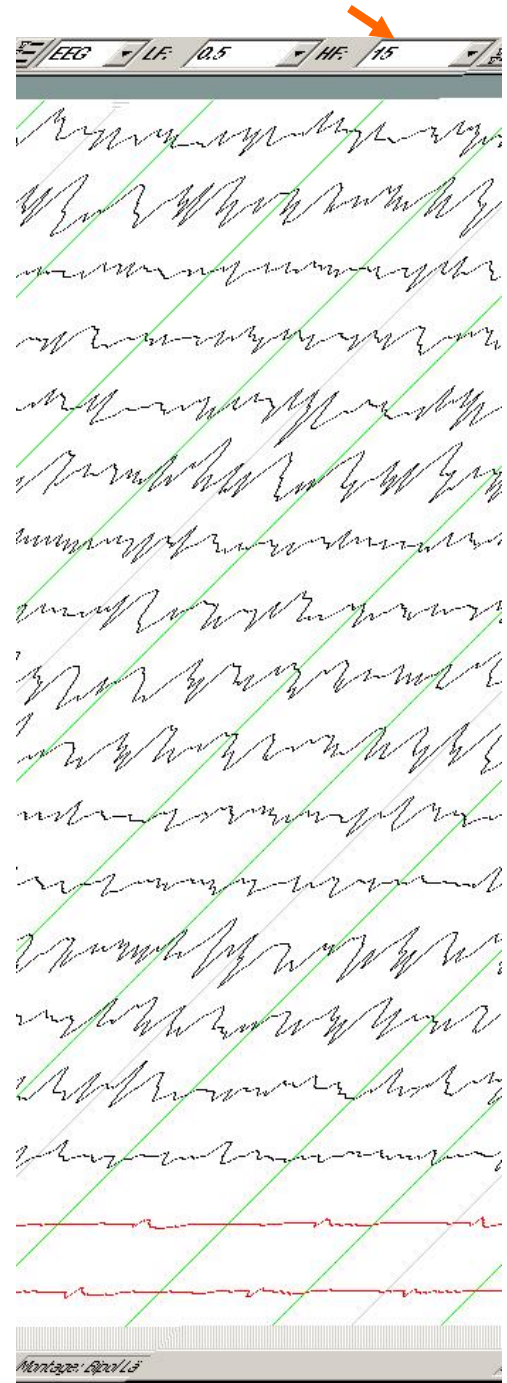 EEG LF: 0.5 HF: 15
Montage: Bipol Lä